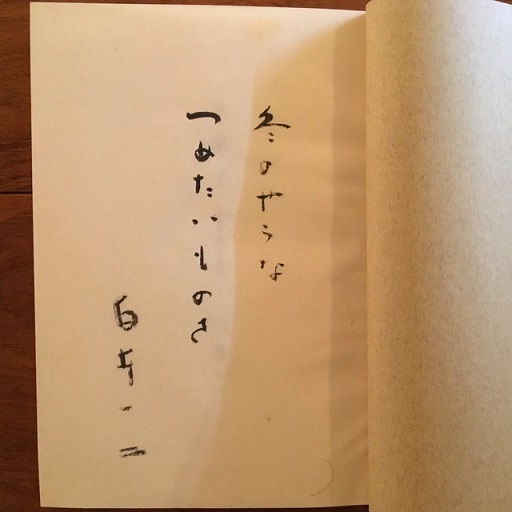 冬のやうな
つめたいものさ
白井一二